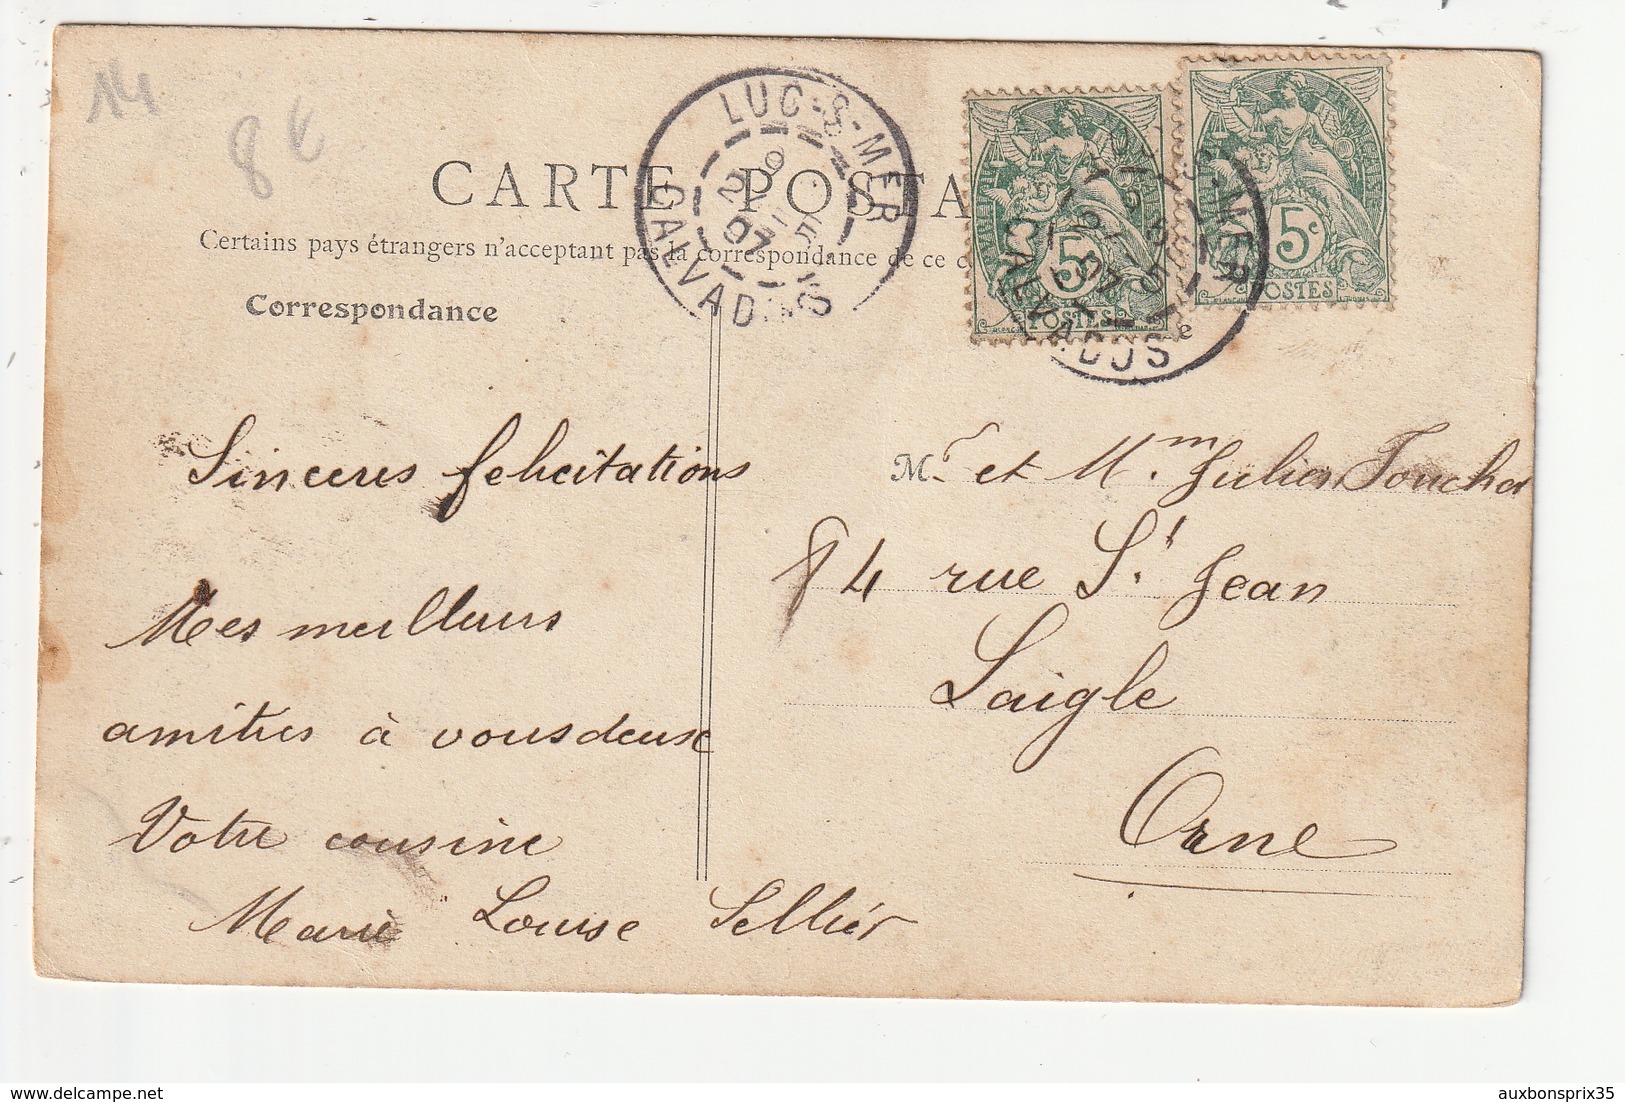 14
8 €
CARTE POSTA
Certains pays étrangers n'acceptant pas la correspondance de ce c
Correspondance
LUC-S-MER
CALVADOS
07
5c
POSTES
5c
POSTES
S-MER
CALVADOS
07
Sinceres felicitations
Mes meilleurs
amitiés à vous deux
Votre cousine
Marie Louise Sellier
Mr et Mme Julien Foucher
84 rue St Jean
Laigle
Orne
delcampe.net
auxbonsprix35